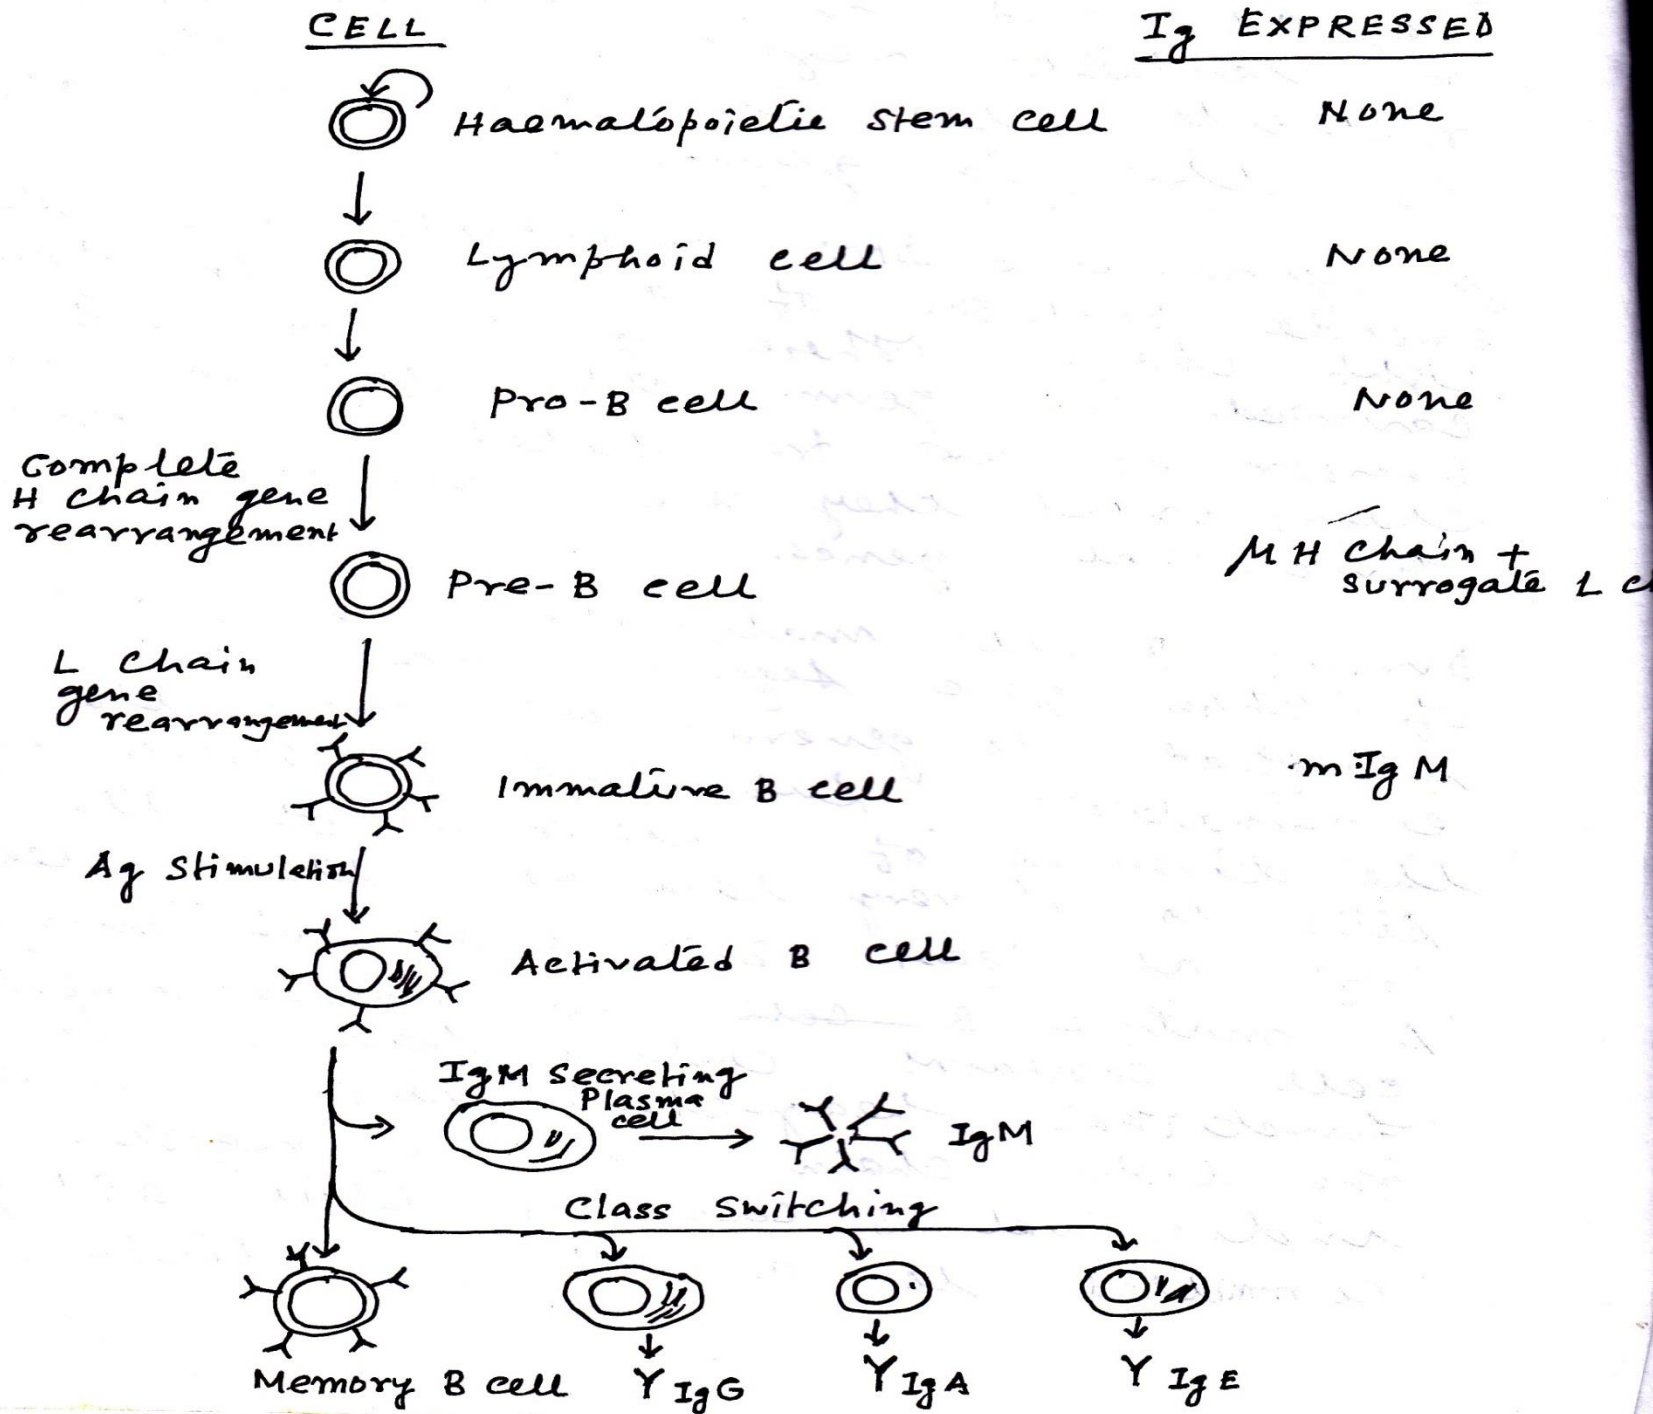 CELL
Ig EXPRESSED
Haematopoietic stem cell
None
Lymphoid cell
None
Pro-B cell
None
Complete
H chain gene
rearrangement
Pre-B cell
μ H chain +
surrogate L
L chain
gene
rearrangement
Immature B cell
mIgM
Ag stimulation
Activated B cell
IgM secreting
Plasma
cell
IgM
Class switching
Memory B cell
IgG
IgA
IgE